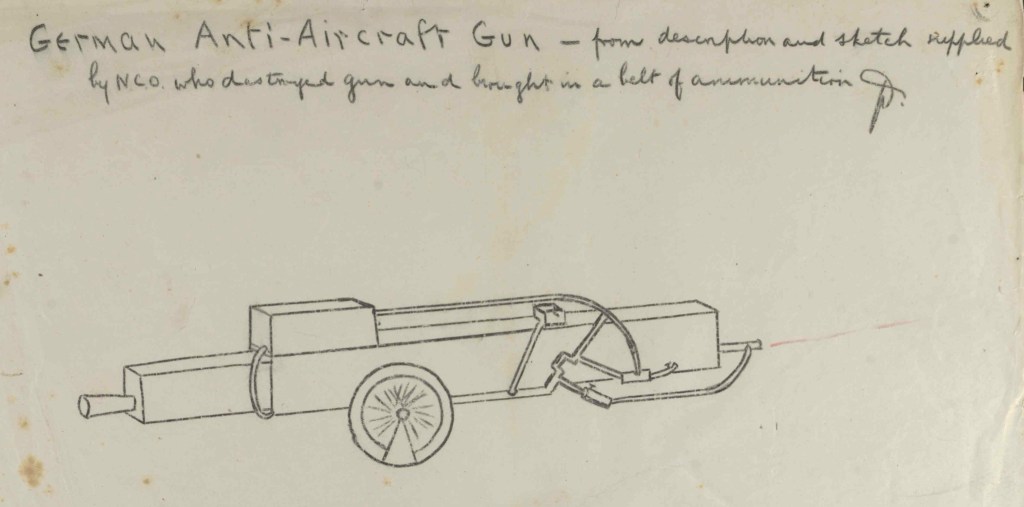 German Anti-Aircraft Gun – from description and sketch supplied
by NCO. who destroyed gun and brought in a belt of ammunition